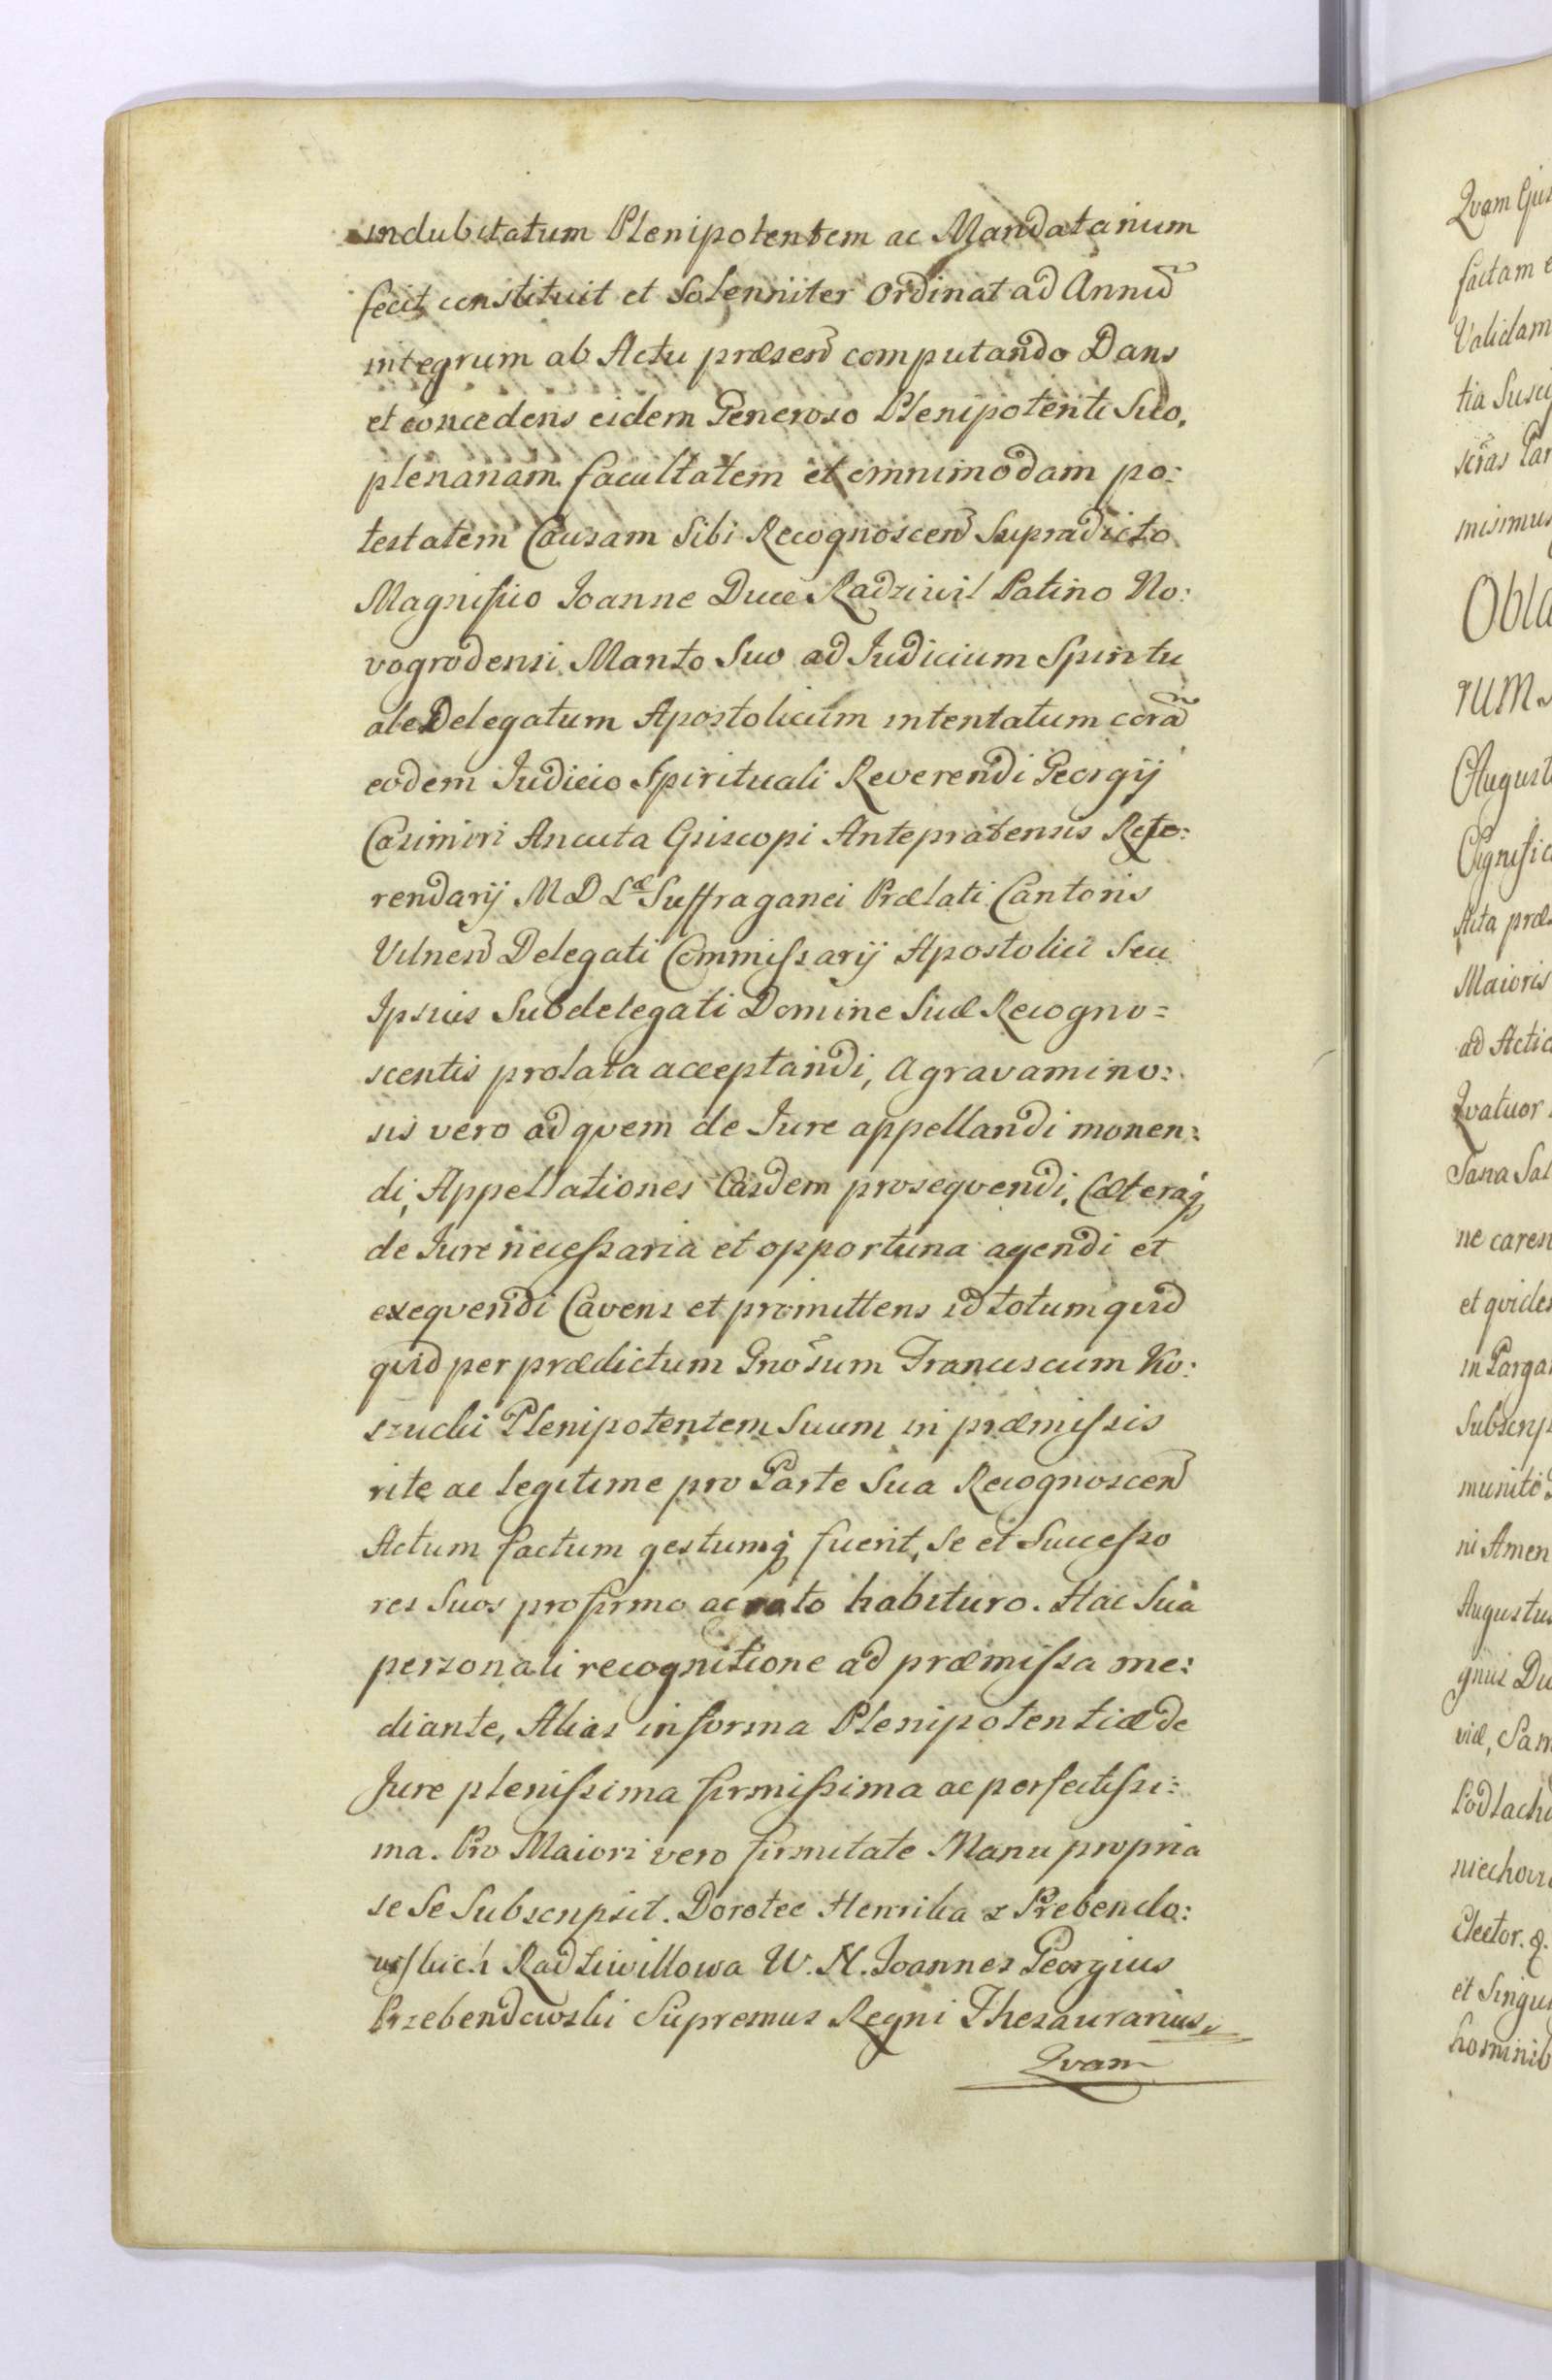 indubitatum Plenipotentem ac Mandatarium
fecit, constituit et Solenniter Ordinat ad Annũ
integrum ab Actu præsen̄ computando Dans
et concedens eidem Generoso Plenipotenti Suo,
plenariam facultatem et omnimodam po:
testatem Causam Sibi Recognoscen̄ Supradicto
Magnifico Joanne Duce Radziwil Patino No:
vogrodensi Marito Suo ad Judicium Spiritu
ale Delegatum Apostolicum intentatum corã
eodem Judicio Spirituali Reverendi Georgij
Casimiri Ancuta Episcopi Antepratensis Refe:
rendarij M D Læ Suffraganei Prælati Cantoris
Vilnen̄ Delegati Commissarij Apostolici Seu
Ipsius Subdelegati Domine Suæ Recogno=
scentis prolata acceptandi, Agravamino:
sis vero ad quem de Jure appellandi monen:
di, Appellationes Easdem prosequendi, Cæteraq̨
de Jure necessaria et opportuna agendi et
exequendi Cavens et promittens id totum quid
quid per prædictum Gnõsum Franciscum Ko:
szucki Plenipotentem Suum in præmissis
rite ac legitime pro Parte Sua Recognoscen̄
Actum factum gestumq̨ fuerit, Se et Successo
res Suos pro firmo ac rato habituro. Hac Sua
personali recognitione ad præmissa me:
diante, Alias in forma Plenipotentiæ de
Jure plenissima firmissima ac perfectissi:
ma. Pro Maiori vero firmitate Manu propria
se Se Subscripsit. Dorotee Henrika z Prebendo:
wskich Radziwillowa W. N. Joannes Georgius
Przebendowski Supremus Regni Thesaurarius,
Qvam
Qvam
factam
Validam
tia
mus
Obla
rum
August
Acta præ
Maioris
ad Actic
Qvatuor
Sana Sal
ne caren
et qvide
in Parga
Subscrip
ni Amen
Augustus
Sam
Podlachi
Elector. &.
et Singu
hominib